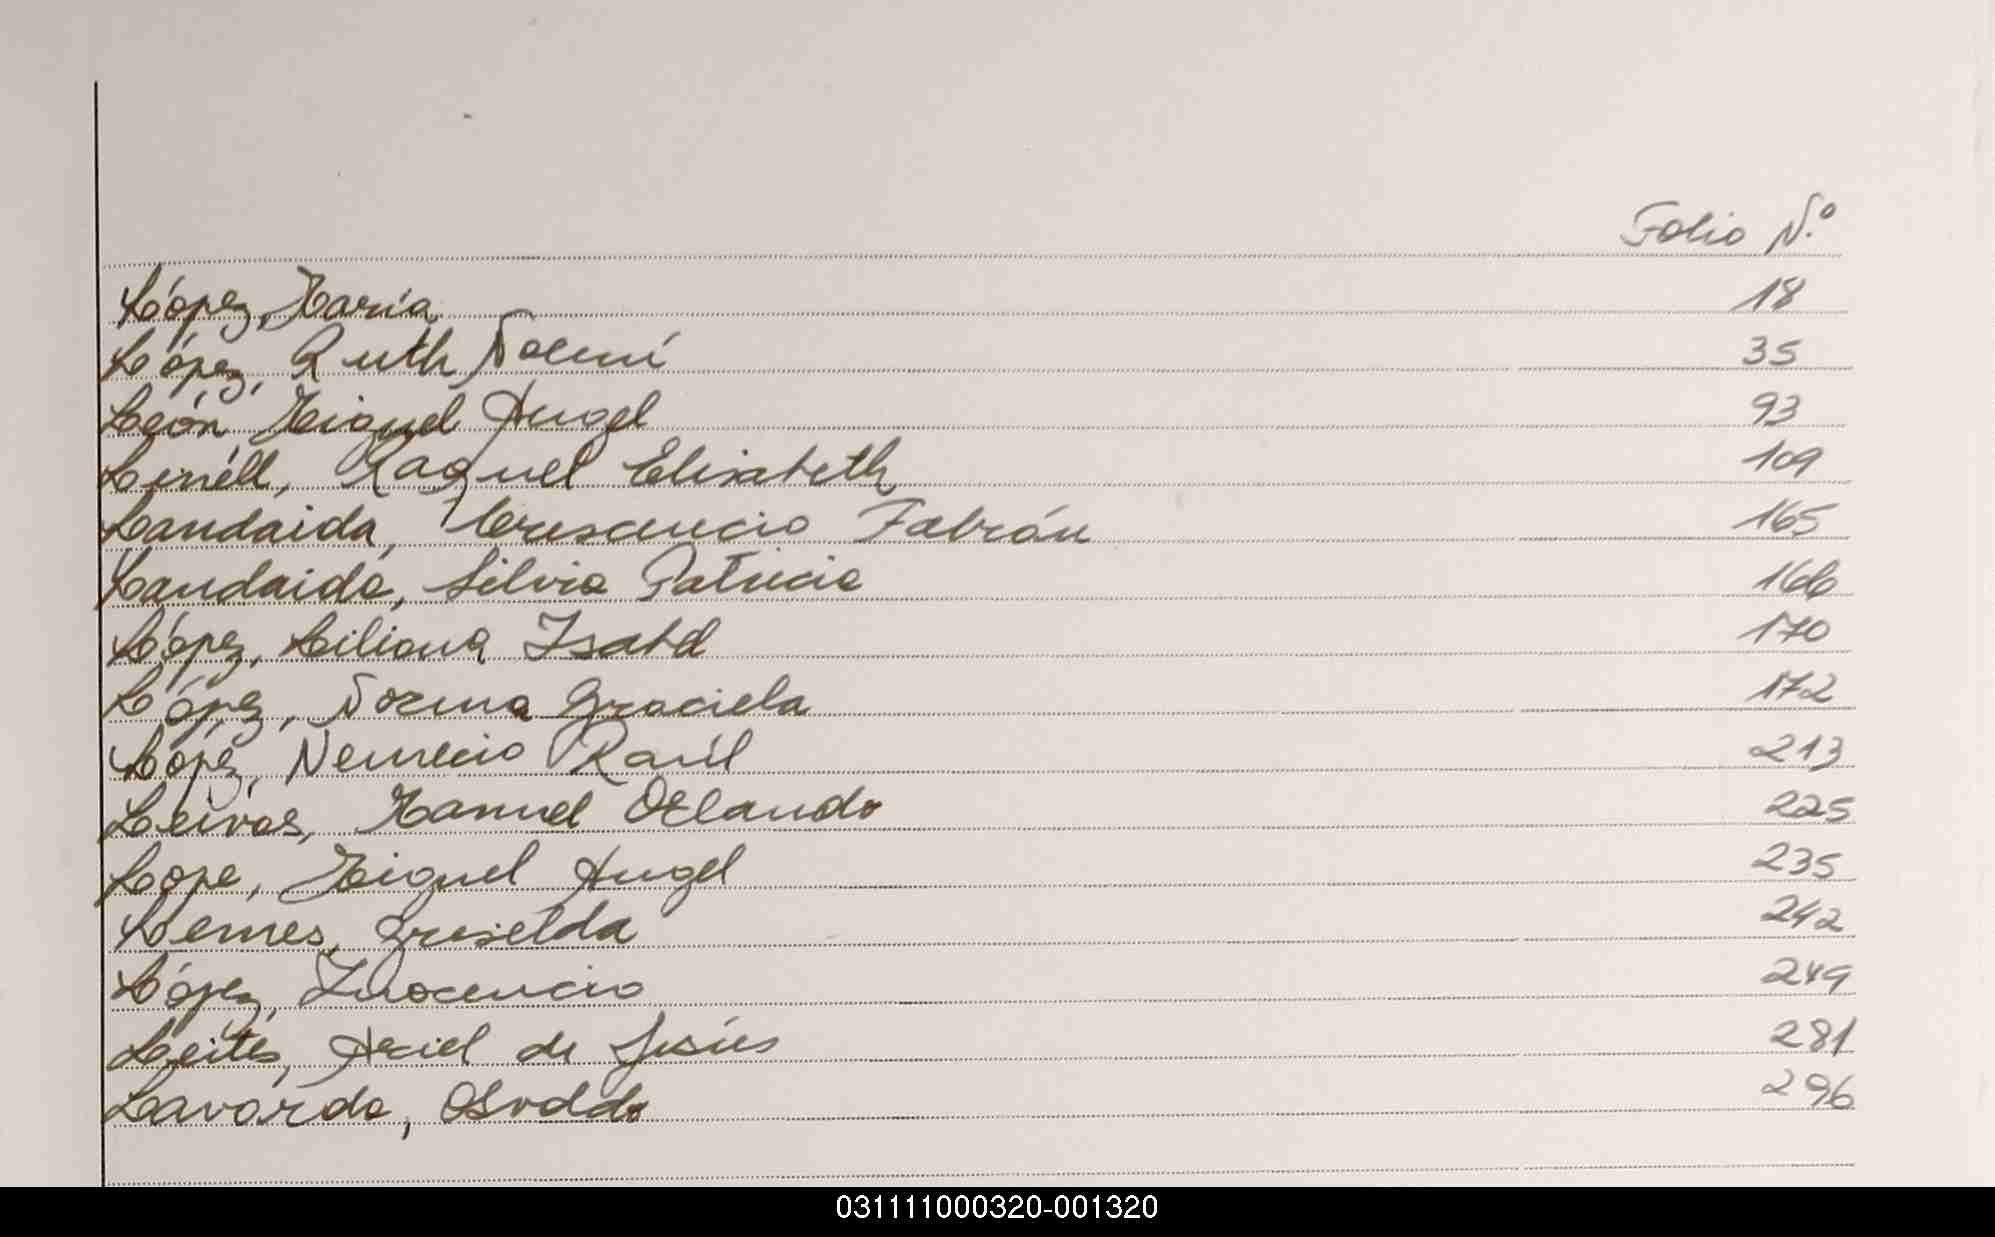 Folio N.º
López, María 18
López, Ruth Noemí 35
León, Miguel Angel 93
Raquel Elisabeth 109
Landaida, Crescencio Fabián 165
Landaida, Silvia Patricia 166
López, Liliana Isabel 170
López, Norma Graciela 172
López, Nemecio Raúl 213
Leivas, Manuel Orlando 225
Lope, Miguel Angel 235
Lemes, Griselda 242
López, Inocencio 249
Leites, Ariel de Jesús 281
296
031111000320-001320